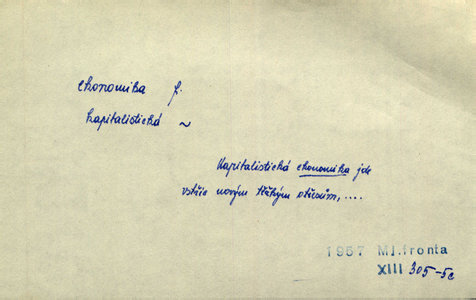 ekonomika f.
kapitalistická ~
Kapitalistická ekonomika jde
vstříc novým těžkým otřesům, ....
1957 Ml.fronta
XIII 305-5c